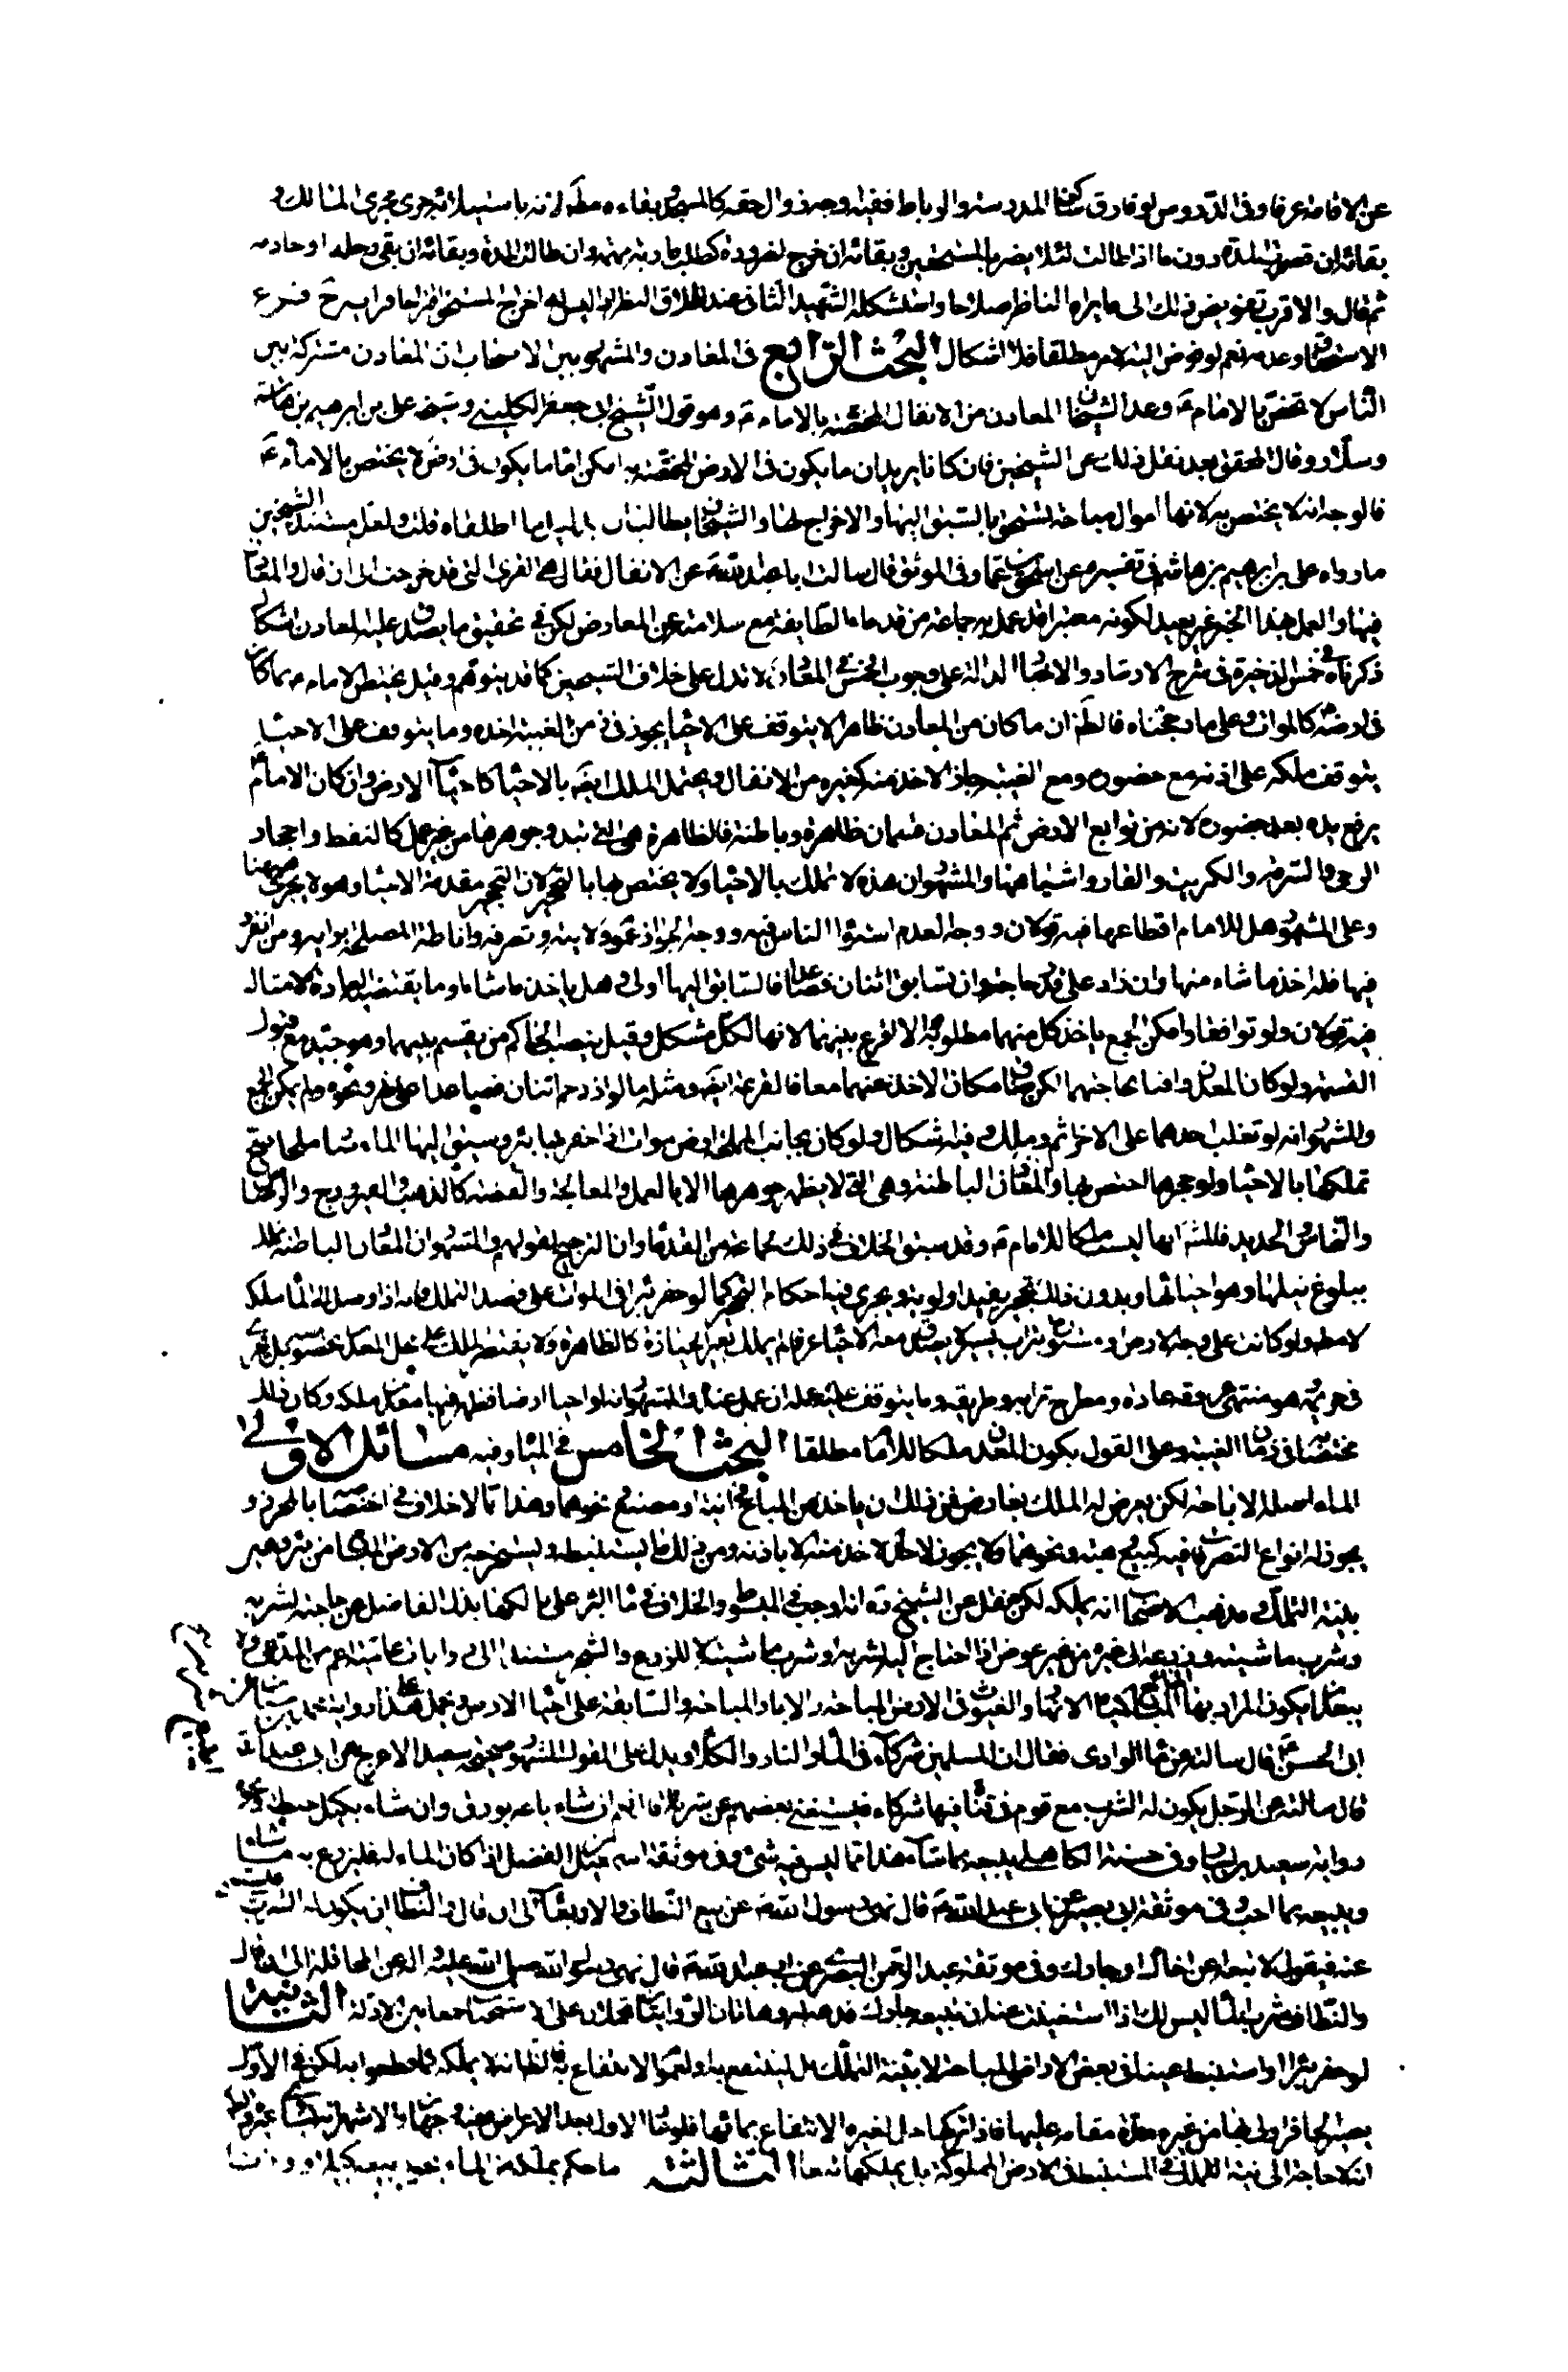 عن الاقامة عرفا وفى الدروس لو فارق ساكن المدرسة والرباط ففيه وجه زوال حقه كالمسجد وبقاءه مطلقا لانه باستيلائه جرى مجرى المالك و
بقائه ان قصرت المدة دون ما اذا طالت لئلا يضر بالمستحقين وبقائه ان خرج لضرورة كطلب مأربة مهمة وان طالت المدة وبقائه ان بقى رحله او خادمه
ثم قال والاقرب تفويض ذلك الى ما يراه الناظر صلاحا واستشكله الشهيد الثانى عند اطلاق النظر اذ ليس له اخراج المستحق اقتراحا فرأيه ح فرع
الاستحقاق وعدمه نعم لو فوض اليه الامر مطلقا فلا اشكال البحث الرابع فى المعادن والمشهور بين الاصحاب ان المعادن مشتركة بين
الناس لا تختص بالامام ع وعد الشيخان المعادن من الانفال المختصة بالامام ع وهو قول الشيخ ابى جعفر الكلينى وشيخه على بن ابرهيم بن هاشم
وسلار وقال المحقق بعد نقل ذلك عن الشيخين فان كانا يريدان ما يكون فى الارض المختصة به امكن اما ما يكون فى ارض لا يختص بالامام ع
فالوجه انه لا يختص به لانها اموال مباحة تستحق بالسبق اليها والاخراج لها والشيخان يطالبان بالدليل لما اطلقاه قلت ولعل مستند الشيخين
ما رواه على بن ابراهيم بن هاشم فى تفسيره عن اسحق بن عمار فى الموثق قال سالت ابا عبد الله ع عن الانفال فقال هى القرى التى قد خربت الى ان قال والمعادن
منها والعمل بهذا الخبر غير بعيد لكونه معتبرا قد عمل به جماعة من قدماء الطايفة مع سلامته عن المعارض لكن فى تحقيق ما يصدق عليه المعادن اشكال
ذكرناه فى خمس الذخيرة فى شرح الارشاد والاخبار الدالة على وجوب الخمس فى المعادن لا تدل على خلاف الشيخين كما قد يتوهم وقيل يختص الامام ع بما كان
فى ارضه كالموات وعلى ما رجحناه فالظ ان ما كان من المعادن ظاهرا لا يتوقف على الاحياء يجوز فى زمن الغيبة اخذه وما يتوقف على الاحياء
يتوقف ملكه على اذنه مع حضوره ومع الغيبة جاز الاخذ منه كغيره من الانفال ويحتمل الملك ايضا بالاحياء كاحياء الارض وان كان الامام ع
يرفع يده بعد حضوره لانه من توابع الارض ثم المعادن قسمان ظاهرة وباطنة فالظاهرة هى التى تبدو جوهرها من غير عمل كالنفط واحجار
الرحى والبرمة والكبريت والقار واشباهها والمشهور ان هذه لا تملك بالاحياء ولا يختص بها بالتحجير لان التحجير مقدمة الاحياء وهو لا يجرى ههنا
وعلى المشهور هل للامام اقطاعها فيه قولان ووجه العدم استواء الناس فيه ووجه الجواز عموم ولايته وتصرفه واناطة المصلحة برأيه ومن انفرد
فيها فله اخذ ما شاء منها وان زاد على قدر حاجته وان تسابق اثنان فصاعدا فالسابق اليها اولى وهل ياخذ ما شاء او ما يقتضيه العادة لامثاله
فيه قولان ولو توافقا وامكن الجمع ياخذ كل منهما مطلوبه والا اقرع بينهما لانها لكل مشكل وقيل ينصب الحاكم من يقسم بينهما وهو جيد مع قبول
القسمة ولو كان المعدن وافيا بحاجتهما لكن ضاق مكان الاخذ عنهما معا فالقرعة ايضا ومثله ما لو ازدحم اثنان فصاعدا على نهر ونحوه ولم يمكن الجمع
والمشهور انه لو تغلب احدهما على الاخر اثم وملك وفيه اشكال ولو كان بجانب المملحة ارض موات اذا حفر فيها بئر وسيق اليها الماء صار ملحا صح
تملكها بالاحياء ولو حجرها اختص بها والمعادن الباطنة وهى التى لا يظهر جوهرها الا بالعمل والمعالجة والفضة كالذهب والفيروزج والرصاص
والنحاس والحديد فالمشهور انها ليست ملكا للامام ع وقد سبق الخلاف فى ذلك لجماعة من القدماء وان الترجيح لقولهم والمشهور ان المعادن الباطنة تملك
ببلوغ نيلها وهو احيائها وبدون ذلك تحجير يفيد اولوية ويجرى فيها احكام التحجير كما لو حفر بئرا فى الموات على قصد التملك فانه اذا وصل الى الماء ملكه
لا مطلقا ولو كانت على وجه الارض او مستورة بتراب يسير لا يصدق معه الاحياء عرفا لم يملك بغير الحيازة كالظاهرة ولا يقتصر الملك على محل المعدن
فى حريمه هو منتهى عمقه عادة ومطرح ترابه وطريقه وما يتوقف عليه عمله ان عمل عنده والمشهور انه لو احيا ارضا فظهر فيها معدن ملكه وكان ذلك
مختصا فى زمان الغيبة وعلى القول بكون المعدن ملكا للامام مطلقا البحث الخامس فى المياه وفيه مسائل الاولى
الماء اصله الاباحة لكن يعرض له الملك بعارض فمن ذلك ان ياخذ من المباح فى انية او مصنع ونحوهما وهذا مما لا خلاف فى اختصاصه بالمحرز و
يجوز له انواع التصرفات فيه كبيع وهبة ونحوهما ولا يجوز لاحد الاخذ منه الا باذنه ومن ذلك ما يستنبطه ويستخرجه من الارض المباحة من بئر وعين
بنية التملك ومذهب الاصحاب انه يملكه لكن نقل عن الشيخ ره انه اوجب فى المبسوط والخلاف فى ماء البئر على مالكها بذل الفاضل عن حاجته لشربه
وشرب ماشيته وزرعه الى غيره من غير عوض اذا احتاج اليه لشربه وشرب ماشيته لا للزرع والشجر مستندا الى روايات عامية اعم من المدعى ولا
يبعد ان يكون المراد بها الماء المباح كمياه الانهار والعيون فى الارض المباحة والابار المباحة والسابقة على احياء الارض ويحمل على هذا رواية محمد بن سنان عن
ابى الحسن ع قال سالته عن ماء الوادى فقال ان المسلمين شركاء فى الماء والنار والكلاء ويدل على القول المشهور صحيحة سعيد الاعرج عن ابى عبد الله ع
قال سالته عن الرجل يكون له الشرب مع قوم فى قناة فيها شركاء فيستغنى بعضهم عن شربه قال نعم ان شاء باعه بورق وان شاء بكيل حنطة ونحوه
رواية سعيد بن يسار وفى حسنة الكاهلى يبيعه بما شاء هذا مما ليس فيه شئ وفى موثقة اسمعيل بن الفضل اذا كان الماء له فليزرع به ما شاء
ويبيعه بما احب وفى موثقة ابى بصير عن ابى عبد الله ع قال نهى رسول الله ص عن بيع النطاف والاربعاء الى ان قال والنطاف ان يكون له الشرب
عنه فيقول لا تبعه اعره اخاك او جارك وفى موثقة عبد الرحمن البصرى عن ابى عبد الله ع قال نهى رسول الله صلى الله عليه واله عن المحاقلة الى ان قال
والنطاف شرب الماء ليس لك اذا استغنيت عنه ان تبيعه جارك تدعه له وهاتان الروايتان محمولتان على الاستحباب جمعا بين الادلة الثانية
لو حفر بئرا او استنبط عينا فى بعض الاراضى المباحة لا بنية التملك بل لينتفع بها ولعموم الانتفاع فالظ انه لا يملكه كما قطعوا به لكن فى الاول
يصير الحافر اولى بها من غيره مدة مقامه عليها فاذا تركها حل لغيره الانتفاع بمائها فلو عاد الاول بعد الاعراض ففيه وجهان والاشهر
انه لا حاجة الى نية التملك فى المستنبط فى الارض المملوكة بل يملكها تبعا الثالثة ما حكم بملكه من الماء يجوز بيعه كيلا ووزنا